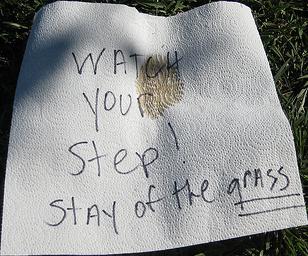 WATCH
YOUR
Step!
STAY of the grass